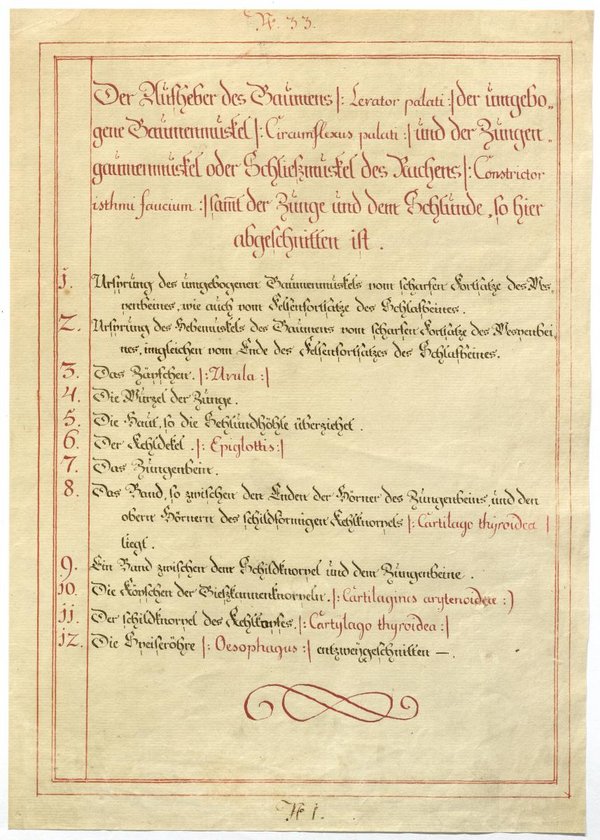 N. 33.
Der Aufheber des Gaumens |: Levator palati :| der umgebo-
gene Gaumenmuskel |: Circumflexus palati :| und der Zungen-
gaumenmuskel oder Schließmuskel des Rachens |: Constrictor
isthmi faucium :| sam̅t der Zunge und dem Schlunde, so hier
abgeschnitten ist.
1. Ursprung des umgebogenen Gaumenmuskels vom scharfen Fortsatze des Wes-
penbeines, wie auch vom Felsenfortsatze des Schlafbeines.
2. Ursprung des Hebemuskels des Gaumens vom scharfen Fortsatze des Wespenbei-
nes, imgleichen vom Ende des Felsenfortsatzes des Schlafbeines.
3. Das Zäpfchen. |: Uvula :|
4. Die Wurzel der Zunge.
5. Die Haut, so die Schlundhöhle überziehet.
6. Der Kehldekel. |: Epiglottis :|
7. Das Zungenbein.
8. Das Band, so zwischen den Enden der Hörner des Zungenbeins, und den
obern Hörnern des schildförmigen Kehlknorpels |: Cartilago thyroidea |
liegt.
9. Ein Band zwischen dem Schildknorpel und dem Zungenbeine.
10. Die Köpfchen der Gießkannenknorpeln. |: Cartilagines arytenoideæ :)
11. Der schildknorpel des Kehlkopfes. |: Cartylago thyroidea :|
12. Die Speiseröhre |: Oesophagus :| entzweygeschnitten —.
N 1.